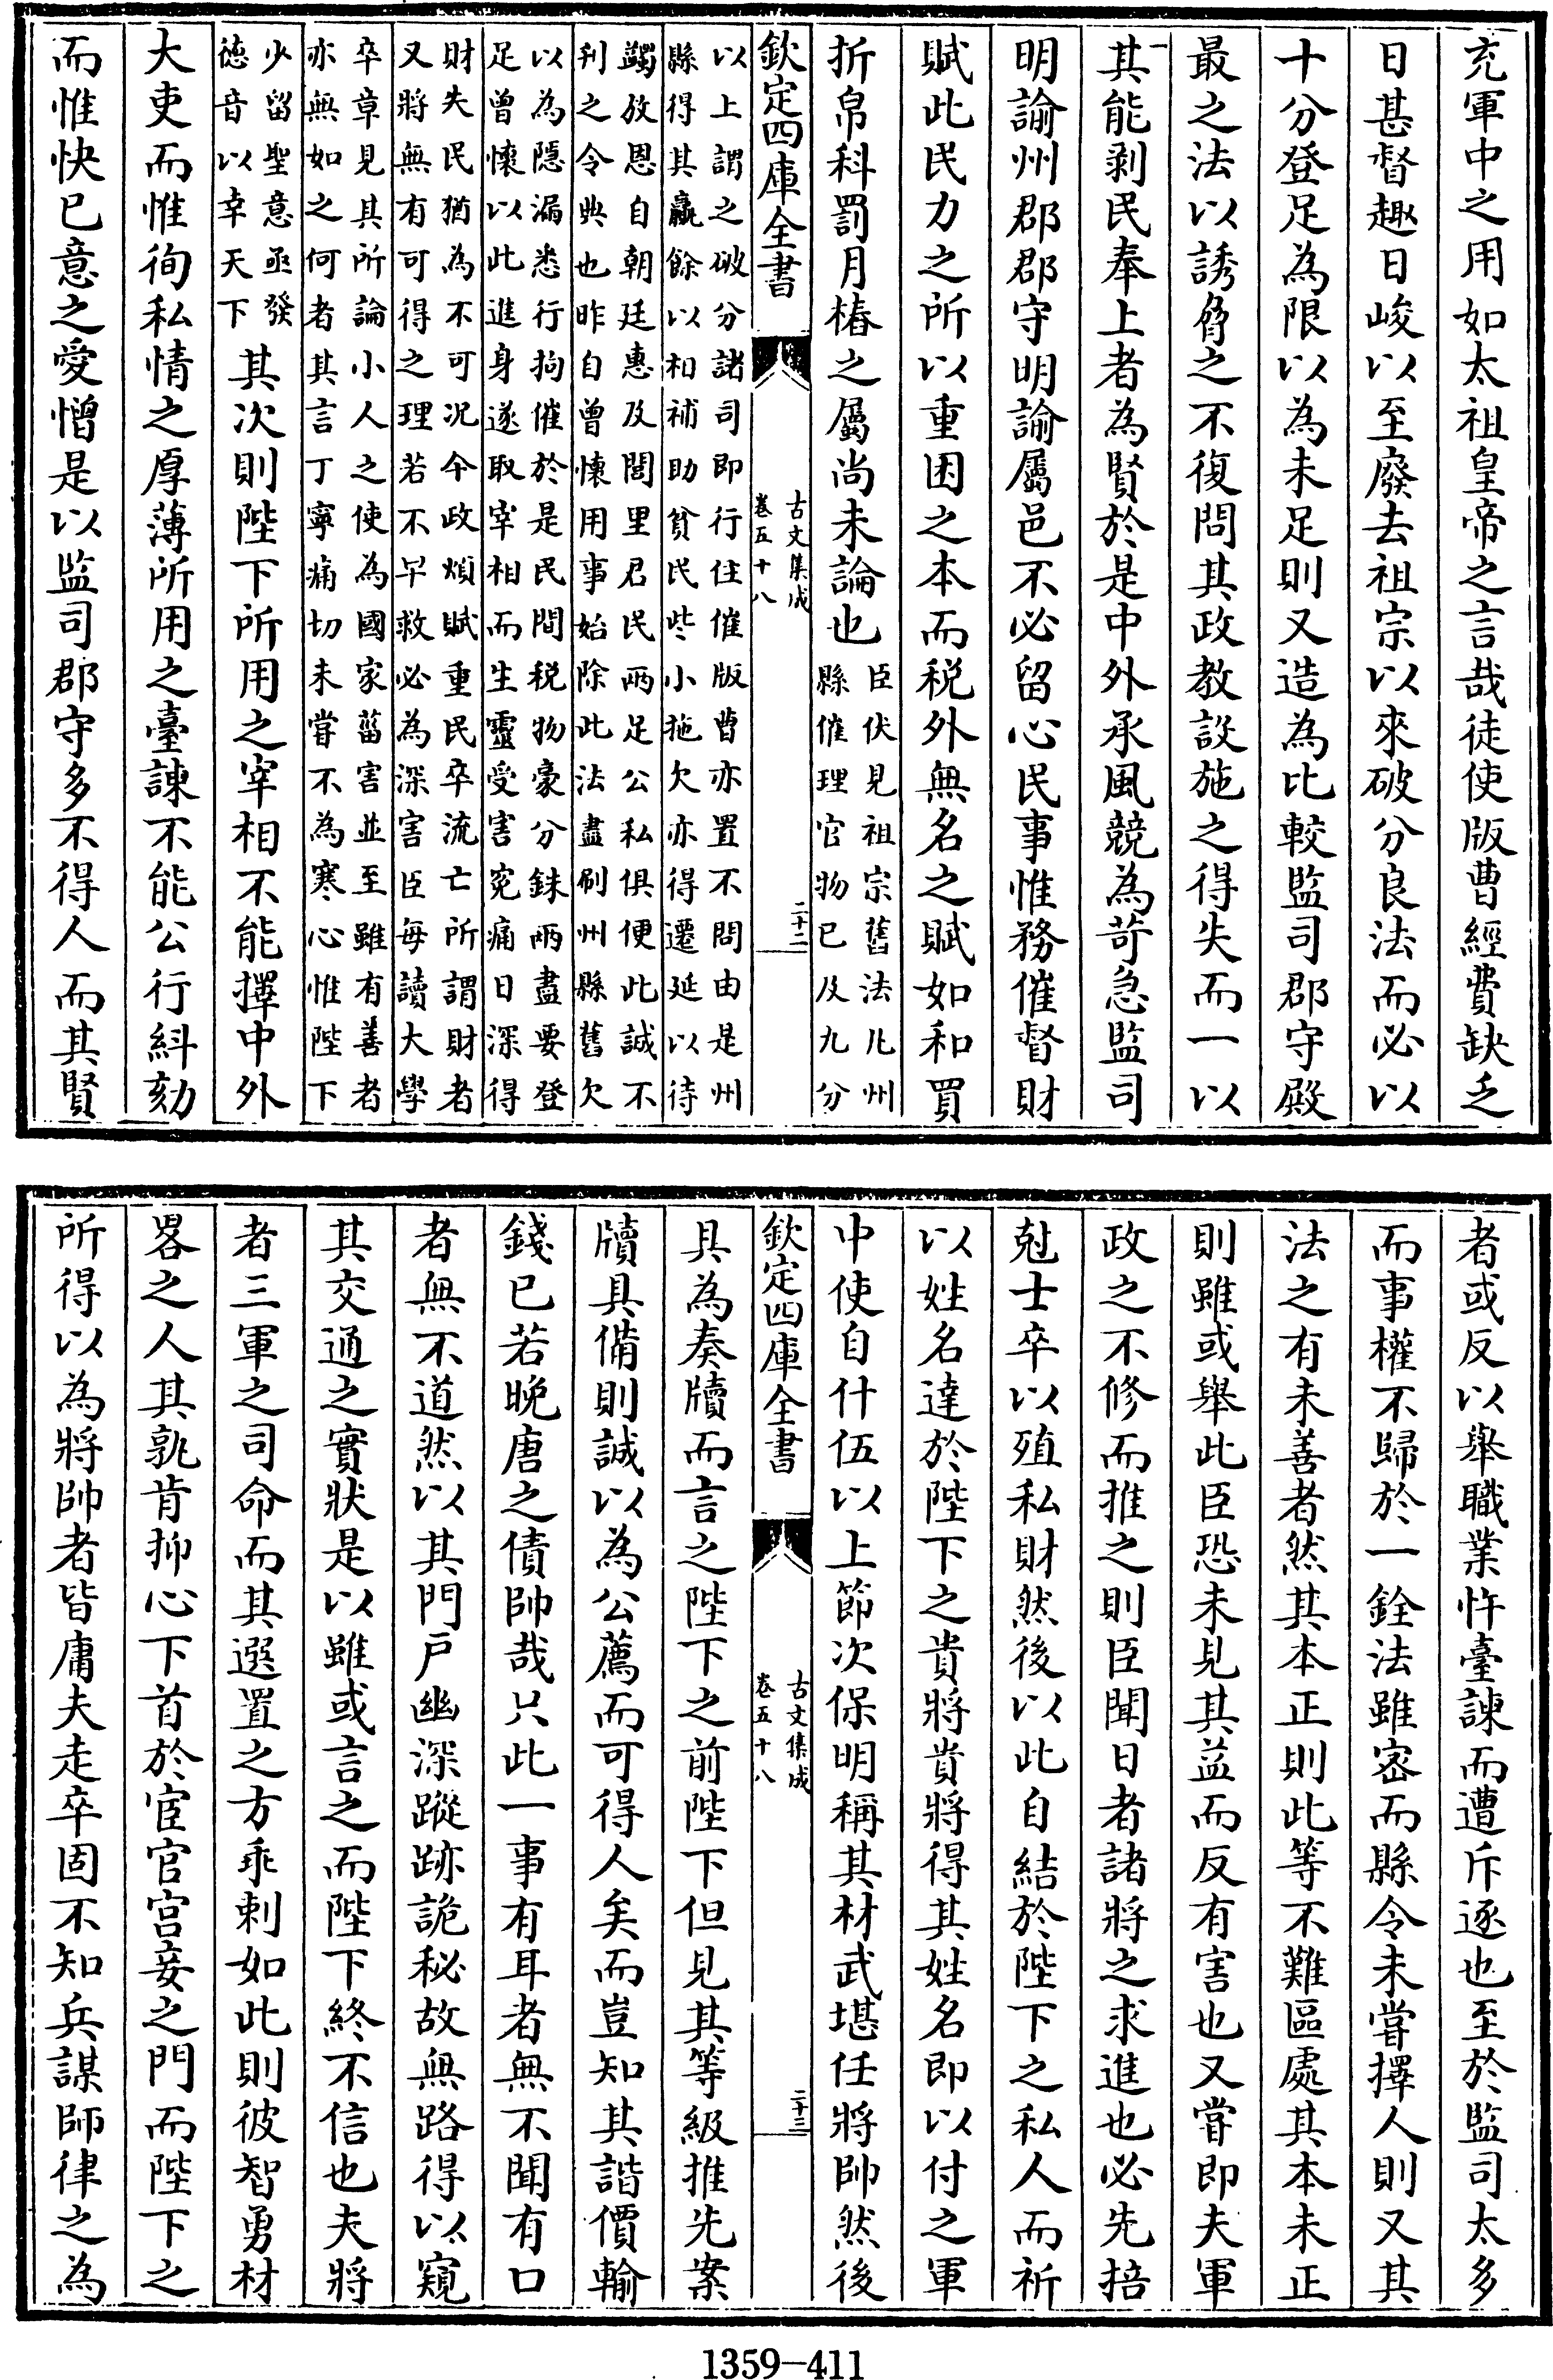 充軍中之用如太祖皇帝之言哉徒使版曹經費缺乏
日甚督趣日峻以至廢去祖宗以來破分良法而必以
十分登足為限以為未足則又造為比較監司郡守殿
最之法以誘脅之不復問其政教設施之得失而一以
其能剥民奉上者為賢於是中外承風競為苛急監司
明諭州郡郡守明諭屬邑不必留心民事惟務催督財
賦此民力之所以重困之本而税外無名之賦如和買
折帛科罰月樁之屬尚未論也臣伏見祖宗舊法凡州
縣催理官物已及九分
欽定四庫全書
古文集成
卷五十八
二十二
以上謂之破分諸司即行住催版曹亦置不問由是州
縣得其羸餘以相補助貧民些小拖欠亦得遷延以待
蠲放恩自朝廷惠及閭里君民兩足公私俱便此誠不
刋之令典也昨自曾懷用事始除此法盡刷州縣舊欠
以為隱漏悉行拘催於是民間税物豪分銖兩盡要登
足曾懷以此進身遂取宰相而生靈受害寃痛日深得
財失民猶為不可况今政煩賦重民卒流亡所謂財者
又將無有可得之理若不早救必為深害臣每讀大學
卒章見其所論小人之使為國家菑害並至雖有善者
亦無如之何者其言丁寧痛切未嘗不為寒心惟陛下
少留聖意亟發
徳音以幸天下
其次則陛下所用之宰相不能擇中外
大吏而惟徇私情之厚薄所用之臺諫不能公行糾劾
而惟快已意之愛憎是以監司郡守多不得人而其賢
者或反以舉職業忤臺諫而遭斥逐也至於監司太多
而事權不歸於一銓法雖密而縣令未嘗擇人則又其
法之有未善者然其本正則此等不難區處其本未正
則雖或舉此臣恐未見其益而反有害也又嘗即夫軍
政之不修而推之則臣聞日者諸將之求進也必先掊
尅士卒以殖私財然後以此自結於陛下之私人而祈
以姓名達於陛下之貴將貴將得其姓名即以付之軍
中使自什伍以上節次保明稱其材武堪任將帥然後
欽定四庫全書
古文集成
卷五十八
二十三
具為奏牘而言之陛下之前陛下但見其等級推先案
牘具備則誠以為公薦而可得人矣而豈知其諧價輸
錢已若晚唐之債帥哉只此一事有耳者無不聞有口
者無不道然以其門戸幽深蹤跡詭秘故無路得以窺
其交通之實狀是以雖或言之而陛下終不信也夫將
者三軍之司命而其選置之方乖剌如此則彼智勇材
畧之人其孰肯抑心下首於宦官宫妾之門而陛下之
所得以為將帥者皆庸夫走卒固不知兵謀師律之為
1359-411